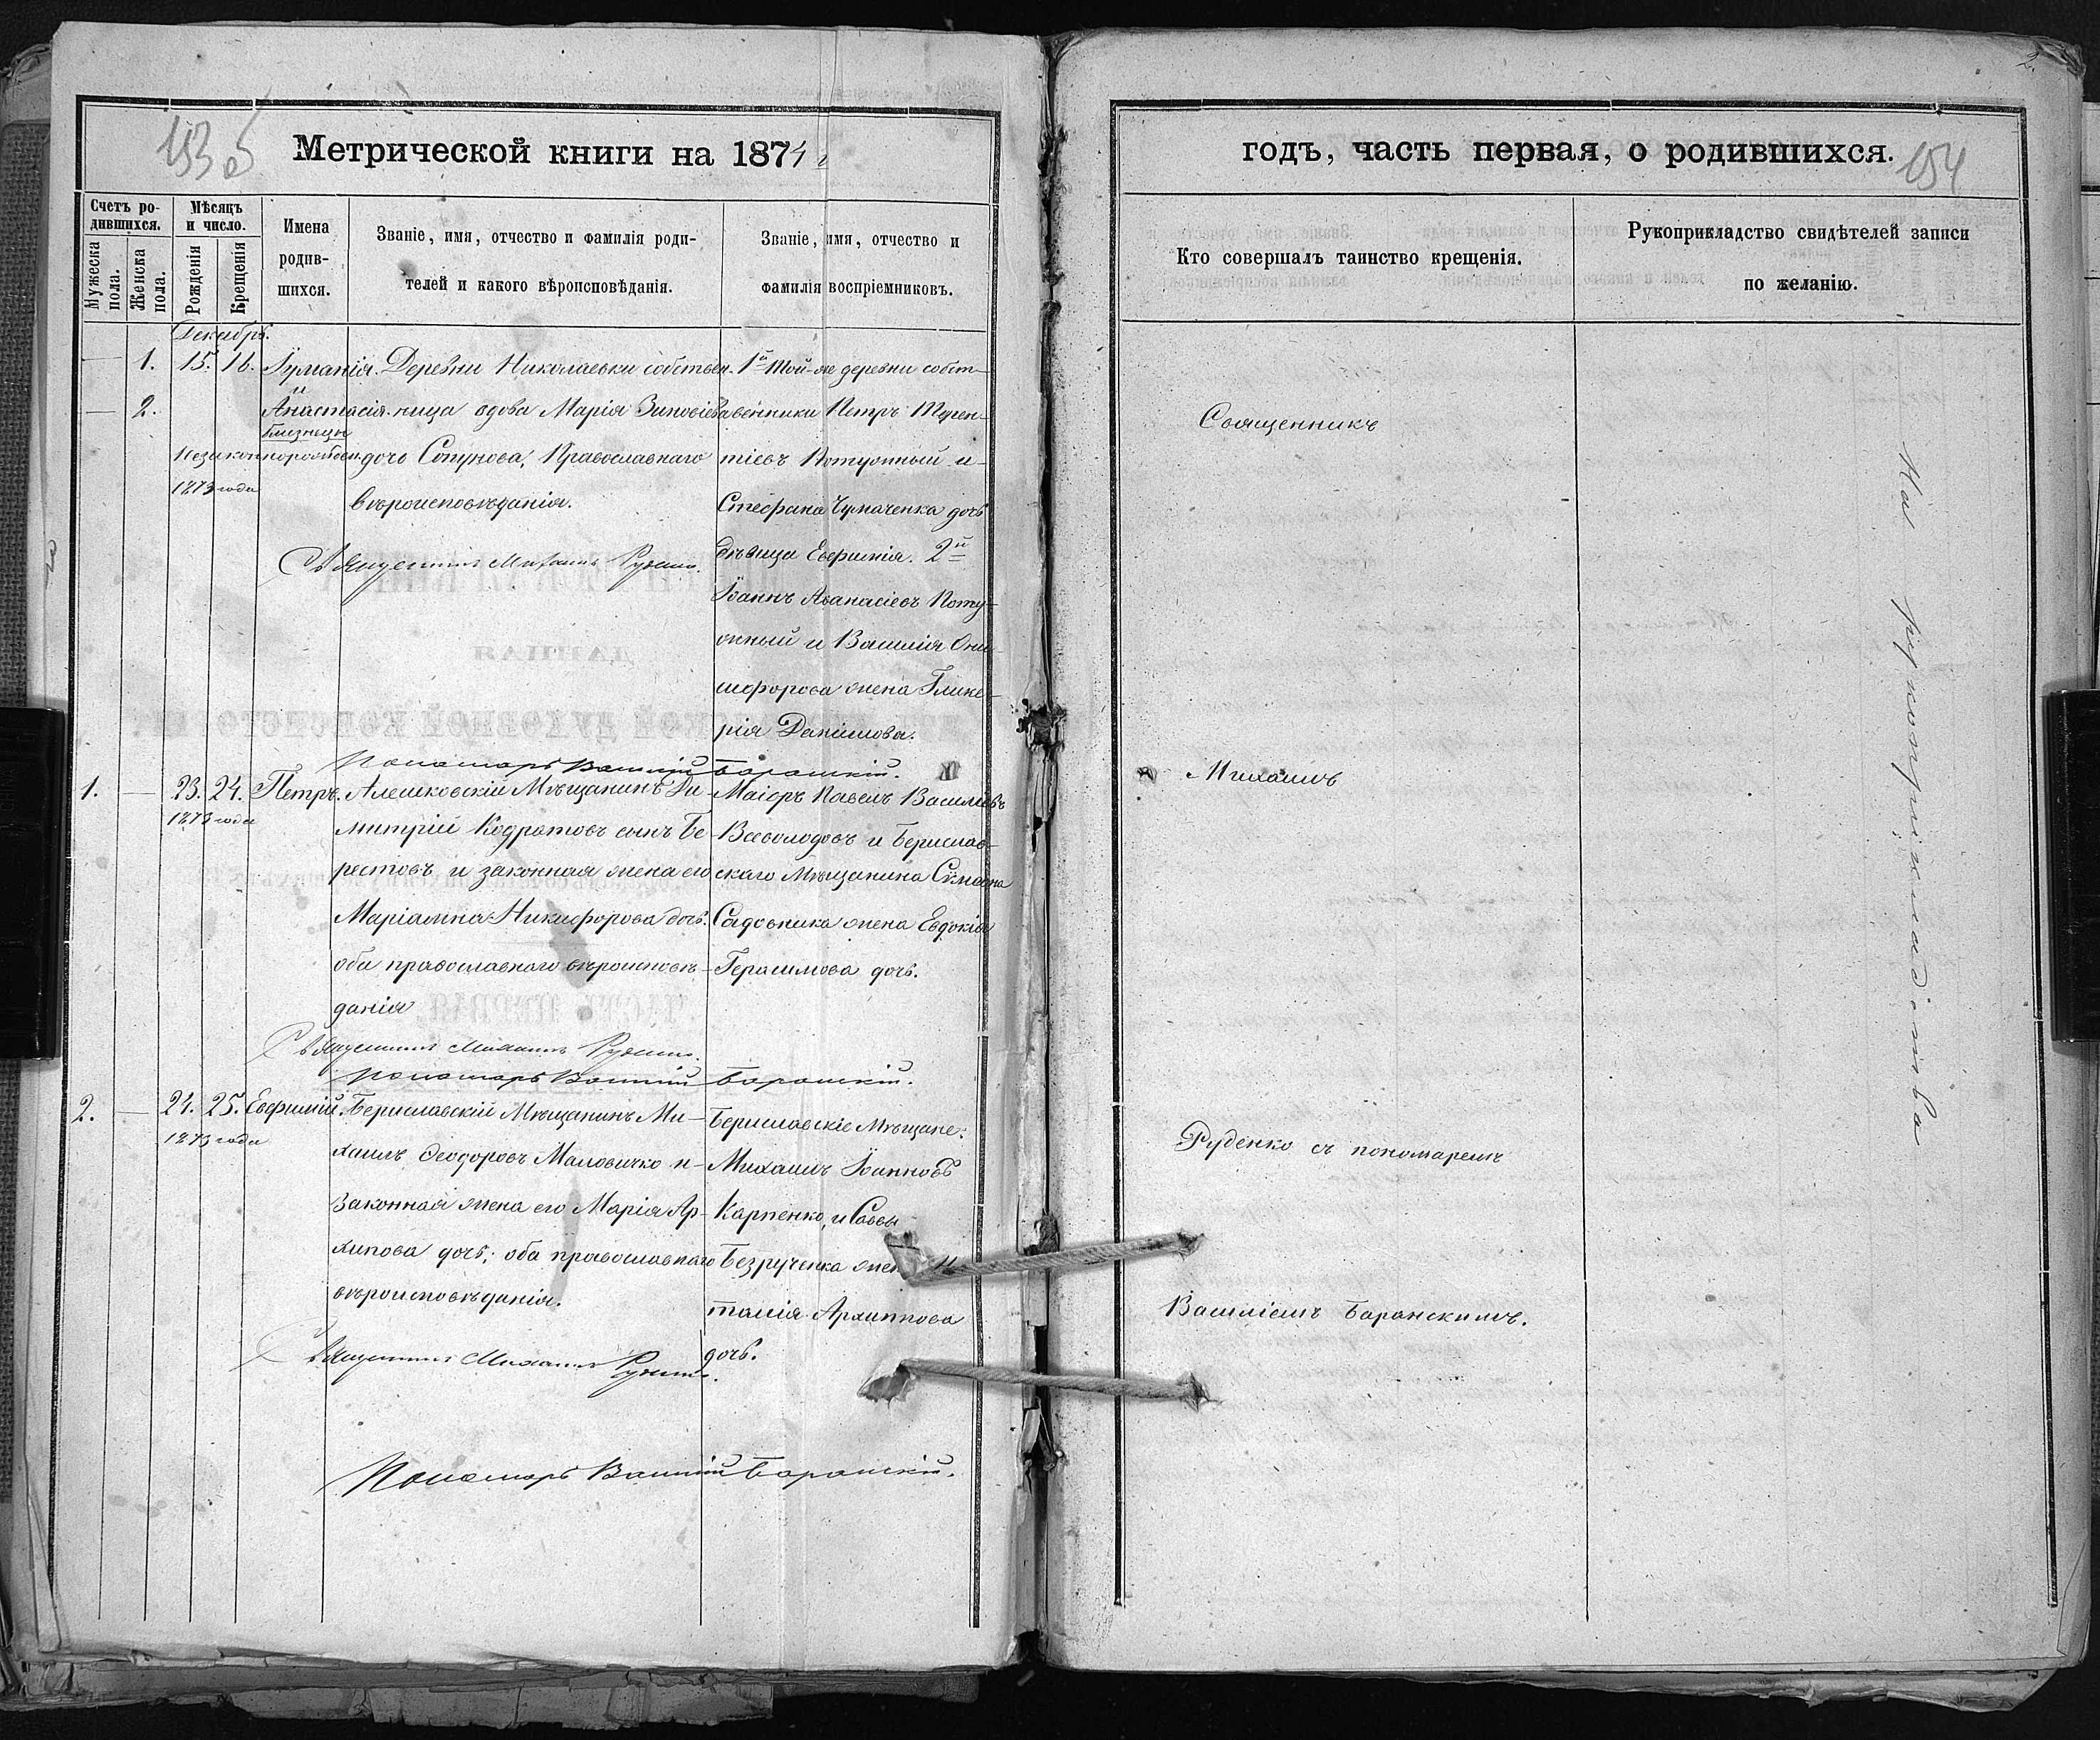 153 об
Метрической книги на 1874
Счетъ ро-
дившихся.
Мужеска
пола.
Женска
пола.
Мѣсяцъ
и число.
Рожденія
Крещенія
Имена
родив-
шихся.
Званіе, имя, отчество и фамилія роди-
телей и какого вѣроисповѣданія.
Званіе, имя, отчество и
фамилія воспріемниковъ.
Декабрь.
1. 15. 16.
и
2. Анастасія
близнецы
незаконнорожден.
1873 года
Деревни Николаевки собствен-
ница вдова Марія Зиновіева
дочь Православнаго
вѣроисповѣданія.
Священникъ Михаилъ Руденко.
1й Той-же деревни собст-
венники Петръ Терен-
тіевъ и
Стефана Чумаченка дочь
дѣвица Евфимія. 2й
Іоаннъ Аѳанасіевъ
и Василія Они-
сифорова жена Глике-
рія Данилова.
Пономарь Василій Баранскій.
1. 23. 24. Петръ.
1873 года
Алешковскій Мѣщанинъ Ди-
митрій Кодратовъ сынъ Бе-
рестовъ и законная жена его
Маріамна Никифорова дочь.
оба православнаго вѣроисповѣ-
данія
Маіоръ Павелъ Васильевъ
Всеволодовъ и Бериславс-
скаго Мѣщанина Симеона
Садовника жена Евдокія
Герасимова дочь.
Священникъ Михаилъ Руденко.
Пономарь Василій Баранскій.
2. 24. 25. Евфимій.
1873 года
Бериславскій Мѣщанинъ Ми-
хаилъ Ѳеодоровъ Маловичко и
Законная жена его Марія Ар-
хипова дочь; оба православнаго
вѣроисповѣданія.
Бериславскіе Мѣщане:
Михаилъ Іоанновъ
Карпенко, и Саввы
Безрученка жен
талія Архиппова
дочь.
Священникъ Михаилъ Руденко.
Пономарь Василій Баранскій.
2.
годъ, часть первая, о родившихся.
154
Кто совершалъ таинство крещенія.
Рукоприкладство свидѣтелей записи
по желанію.
Священникъ
Михаилъ
Руденко съ пономаремъ
Василіемъ Баранскимъ.
рукоприкладства